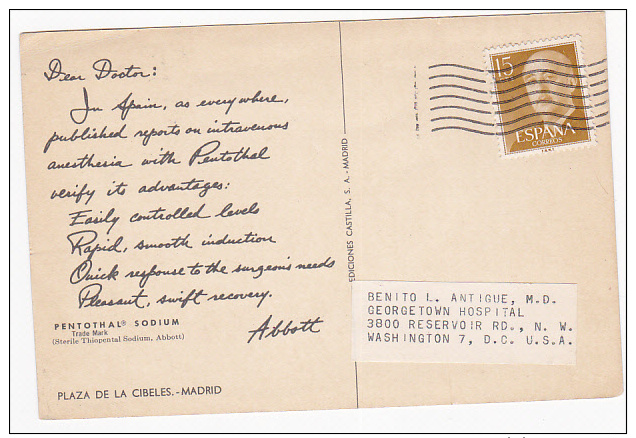 Dear Doctor:
In Spain, as everywhere,
published reports on intravenous
anesthesia with Pentothal
verify its advantages:
Easily controlled levels
Rapid, smooth induction
Quick response to the surgeon's needs
Pleasant, swift recovery.
Abbott
PENTOTHAL® SODIUM
Trade Mark
(Sterile Thiopental Sodium, Abbott)
PLAZA DE LA CIBELES.-MADRID
EDICIONES CASTILLA, S. A. - MADRID
15
ESPAÑA
CORREOS
BENITO L. ANTIGUE, M.D.
GEORGETOWN HOSPITAL
3800 RESERVOIR RD., N. W.
WASHINGTON 7, D.C. U.S.A.